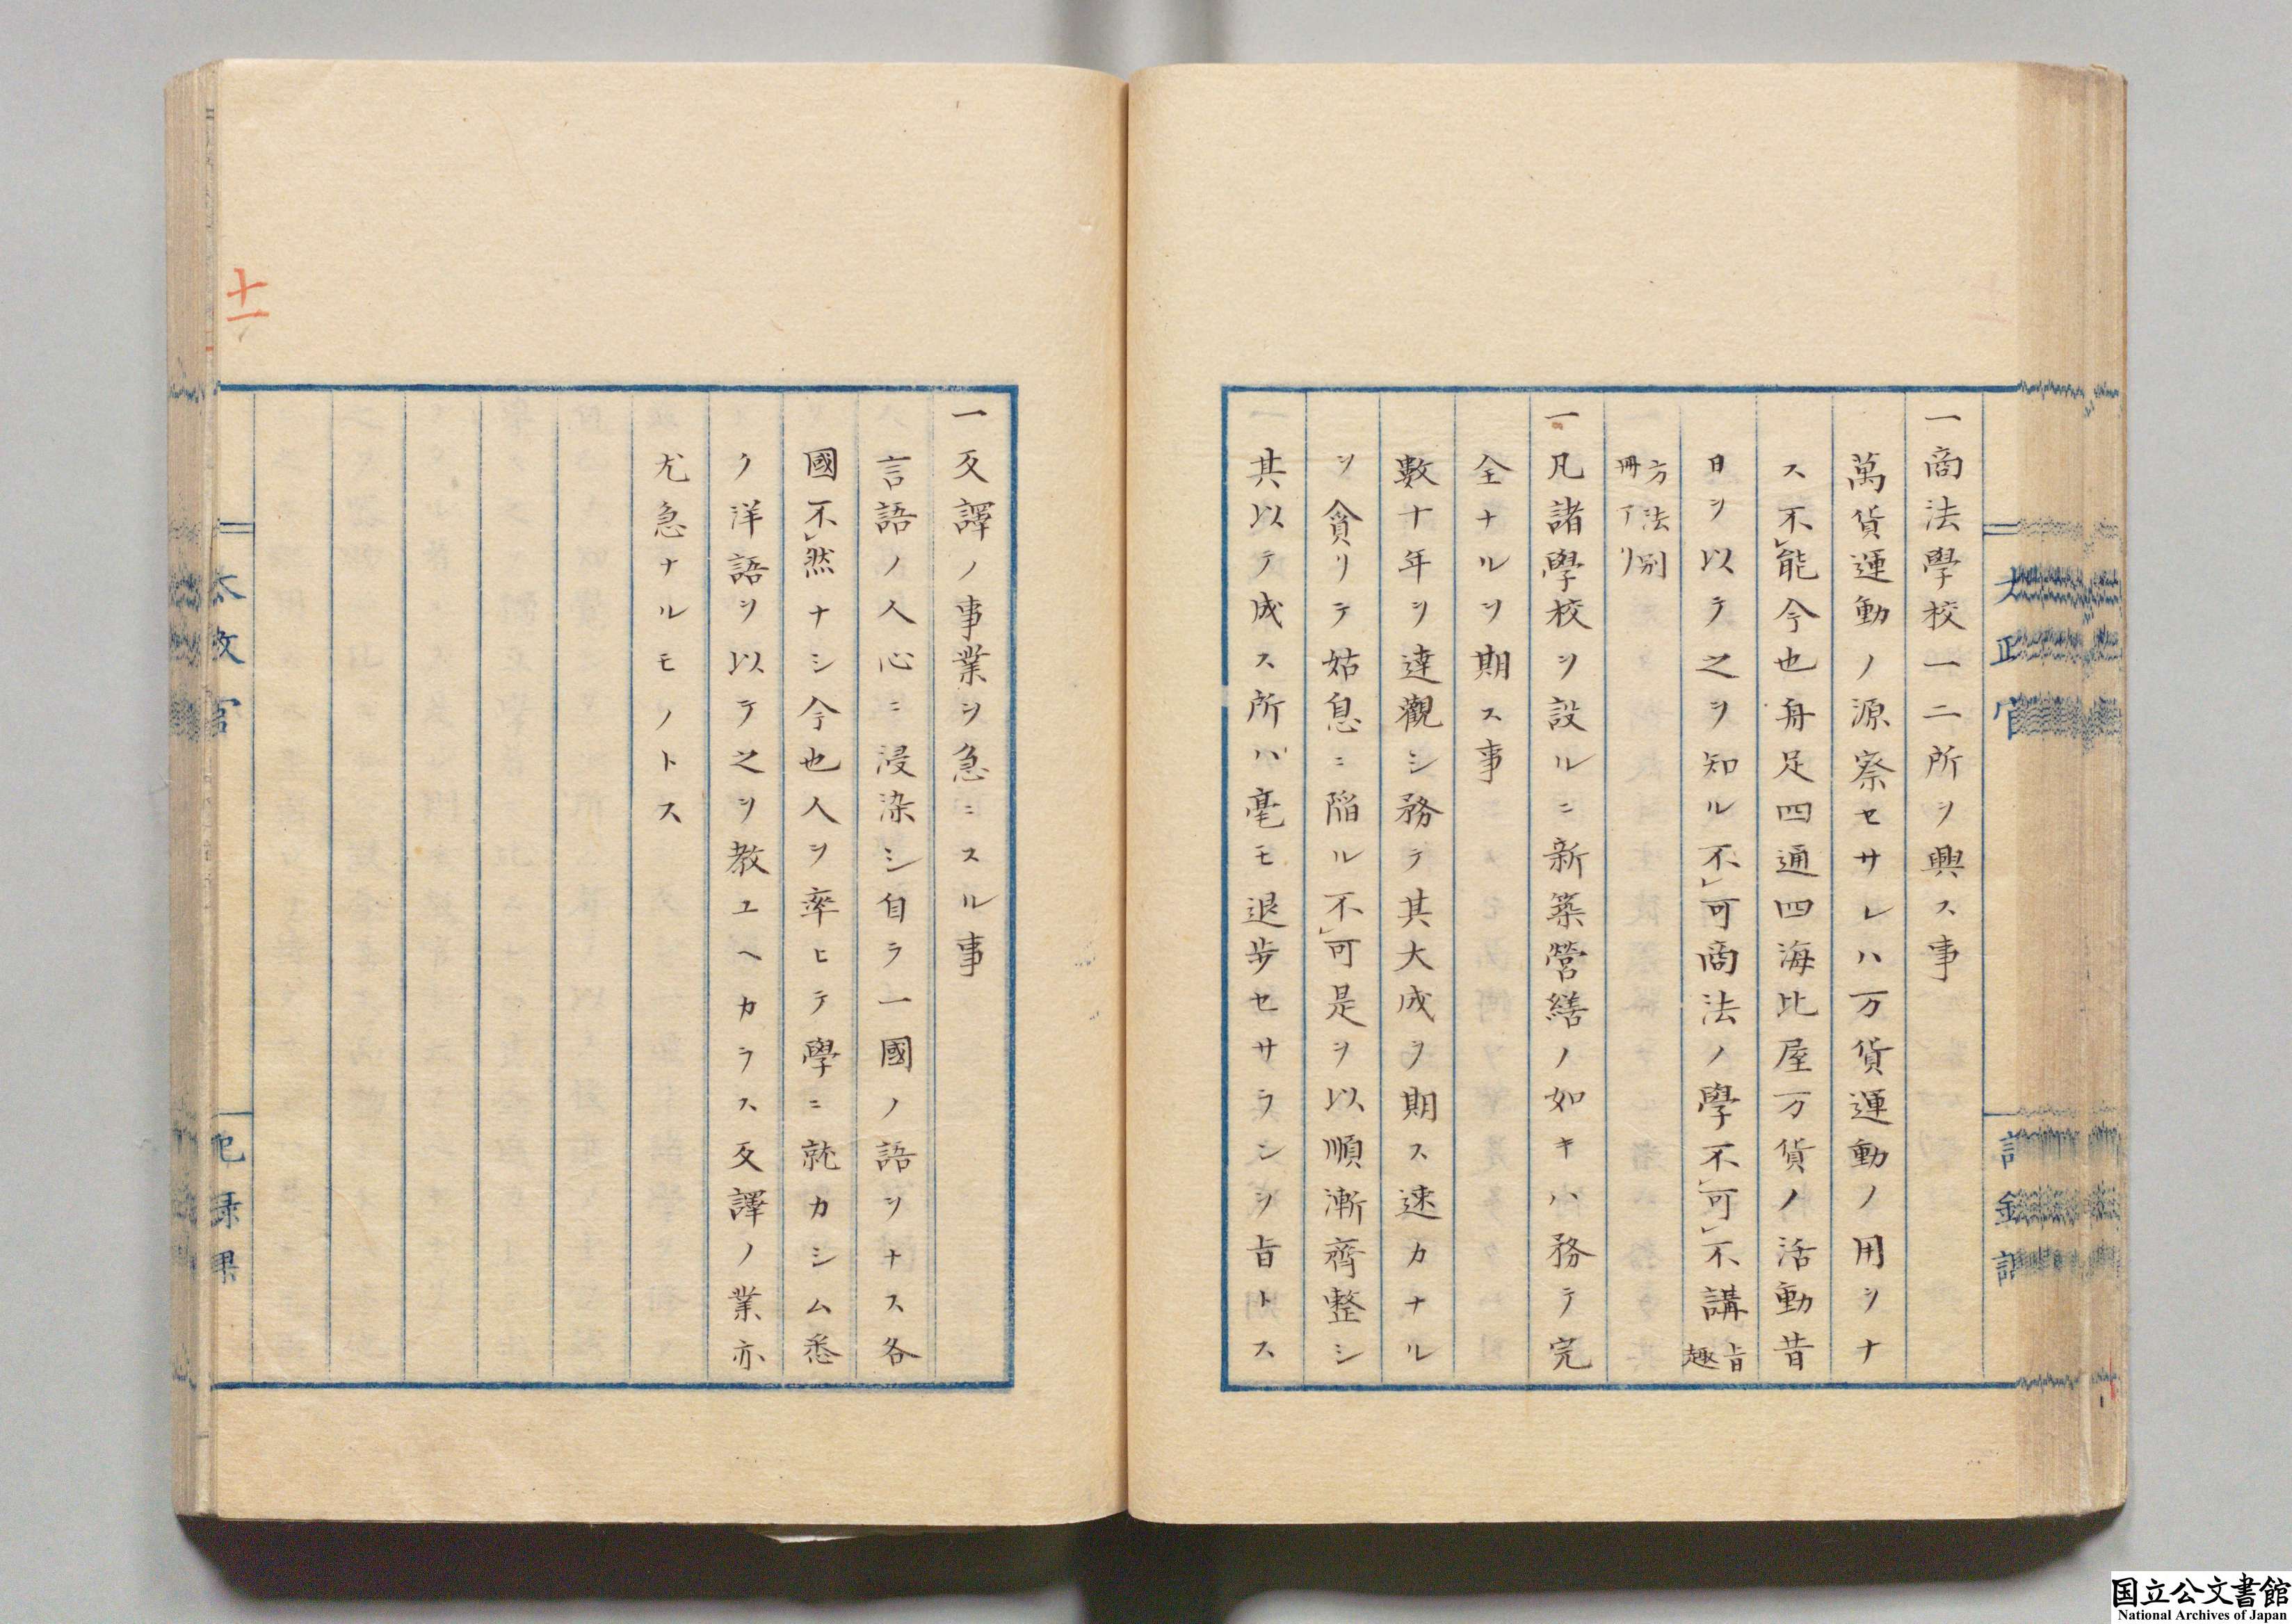 一商法學校一二所ヲ興ス事
萬貨運動ノ源察セサレハ万貨運動ノ用ヲナ
ス不レ能今也舟足四通四海比屋万貨ノ活動昔
日ヲ以テ之ヲ知ル不レ可商法ノ學不レ可レ不講旨趣
方法別
冊アリ
一凡諸學校ヲ設ルニ新築營繕ノ如キハ務テ完
全ナルヲ期ス事
數十年ヲ達觀シ務テ其大成ヲ期ス速カナル
ヲ貪リテ姑息ニ陥ル不レ可是ヲ以順漸齊整シ
其以テ成ス所ハ毫モ退歩セサランヲ旨トス
一反譯ノ事業ヲ急ニスル事
言語ノ人心ニ浸染シ自ラ一國ノ語ヲナス各
國不レ然ナシ今也人ヲ率ヒテ學ニ就カシム悉
ク洋語ヲ以テ之ヲ教ユヘカラス反譯ノ業亦
尤急ナルモノトス
十一
太政官
国立公文書館
National Archives of Japan